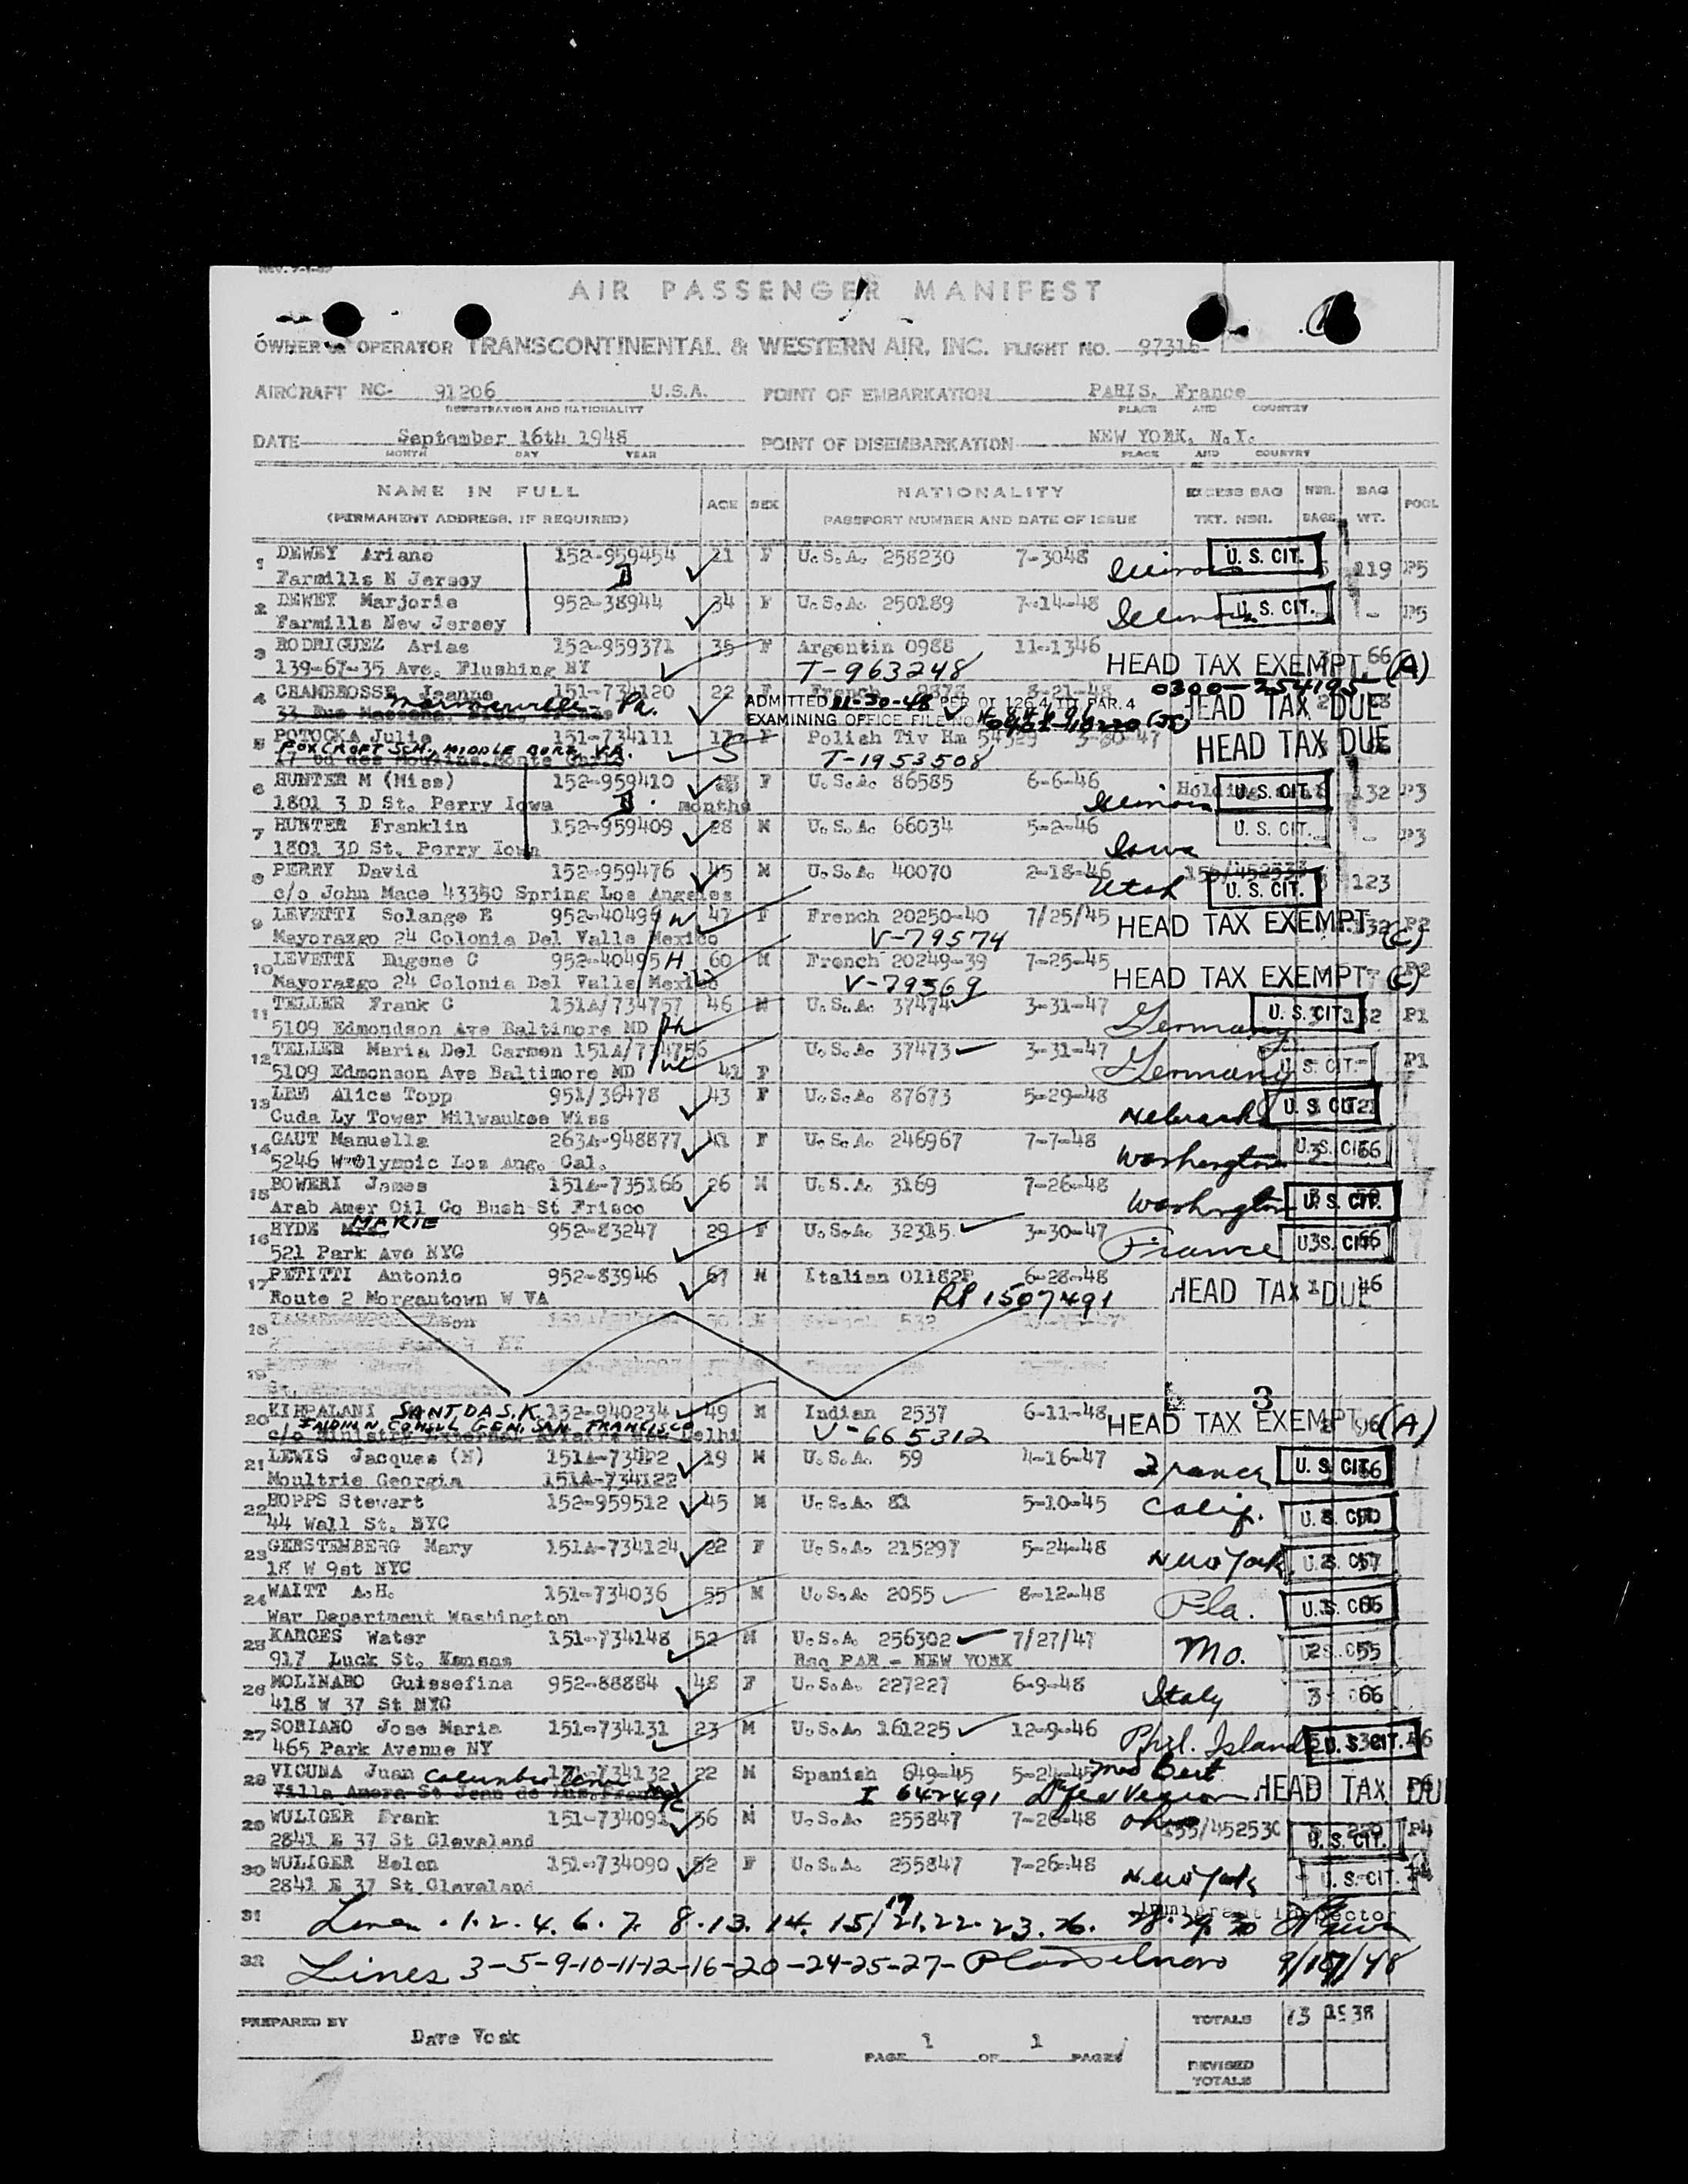 AIR PASSENGER MANIFEST
OWNER OR OPERATOR TRANSCONTINENTAL & WESTERN AIR, INC. FLIGHT NO. 97316
AIRCRAFT NC- 91206 U.S.A. POINT OF EMBARKATION PARIS, France
REGISTRATION AND NATIONALITY PLACE AND COUNTRY
DATE September 16th 1948 POINT OF DISEMBARKATION NEW YORK, N.Y.
MONTH DAY YEAR PLACE AND COUNTRY
NAME IN FULL AGE SEX NATIONALITY EXCESS BAG NBR. BAG POOL
(PERMANENT ADDRESS, IF REQUIRED) PASSPORT NUMBER AND DATE OF ISSUE TKT. NBR. BAGS WT.
1 DEWEY Ariane 152-959454 21 F U.S.A. 258230 7-3048 Illinois U. S. CIT. 119 P5
Farmills N Jersey
2 DEWEY Marjorie 952-38944 34 F U.S.A. 250189 7-14-48 Illinois U. S. CIT. - P5
Farmills New Jersey
3 RODRIGUEZ Arias 152-959371 35 F Argentin 0988 11-1346 66
139-67-35 Ave. Flushing NY T-963248 HEAD TAX EXEMPT. (A)
4 CHAMBROSSE Jeanne 151-734120 22 F French 8-21-48 0300-254195
33 Rue Pa. ADMITTED 11-30-48 PER OI 126.4 TTD PAR. 4 HEAD TAX DUE
EXAMINING OFFICE FILE NO.
5 POTOCKA Julia 151-734111 17 F Polish Tiv Hm 54329 3-20-47 HEAD TAX DUE
FOXCROFT SCH. MIDDLE BURG, VA. S T-1953508
17 bd des Moulins Monte Carlo
6 HUNTER M (Miss) 152-959410 F U.S.A. 86585 6-6-46 Holding U. S. CIT. 132 P3
1801 3 D St. Perry Iowa months Illinois
7 HUNTER Franklin 152-959409 28 M U.S.A. 66034 5-2-46 U. S. CIT. - P3
1801 3D St. Perry Iowa Iowa
8 PERRY David 152-959476 45 M U.S.A. 40070 2-18-46 Utah U. S. CIT. 123
c/o John Mace 43350 Spring Los Angeles
9 LEVETTI Solange E 952-40496 W 47 F French 20250-40 7/25/45 HEAD TAX EXEMPT. 132 P2
Mayorazgo 24 Colonia Del Valle Mexico V-79574 (C)
10 LEVETTI Eugene C 952-40495 H 60 M French 20249-39 7-25-45 P2
Mayorazgo 24 Colonia Del Valle Mexico V-79569 HEAD TAX EXEMPT. (C)
11 TELLER Frank C 151A/734757 46 M U.S.A. 37474 3-31-47 Germany U. S. CIT. 132 P1
5109 Edmondson Ave Baltimore MD
12 TELLER Maria Del Carmen 151A/734756 U.S.A. 37473 3-31-47 Germany U. S. CIT. - P1
5109 Edmonson Ave Baltimore MD 41 F
13 LEE Alice Topp 951/36478 43 F U.S.A. 87673 5-29-48 Nebraska U. S. CIT.
Cuda Ly Tower Milwaukee Wiss
14 GAUT Manuella 263A-948877 41 F U.S.A. 246967 7-7-48 Washington U. S. CIT. 66
5246 W Olympic Los Ang. Cal.
15 BOWERI James 151A-735166 26 M U.S.A. 3169 7-26-48 Washington U. S. CIT.
Arab Amer Oil Co Bush St Frisco
16 HYDE MARIE 952-83247 29 F U.S.A. 32315 3-30-47 France U. S. CIT. 66
521 Park Ave NYC
17 PETITTI Antonio 952-83946 67 M Italian 01182P 6-28-48 HEAD TAX DUE 1 46
Route 2 Morgantown W VA RP 1507491
18
19
3
20 KIRPALANI SANTDAS. K 152-940234 49 M Indian 2537 6-11-48 HEAD TAX EXEMPT (A)
INDIAN CONSUL GEN. SAN FRANCISCO V-665312
c/o Ministry External Affairs New Delhi
21 LEWIS Jacques (M) 151A-734122 19 M U.S.A. 59 4-16-47 France U. S. CIT. 66
Moultrie Georgia 151A-734122
22 HOPPS Stewart 152-959512 45 M U.S.A. 81 5-10-45 Calif. U. S. CIT.
44 Wall St. NYC
23 GERSTEMBERG Mary 151A-734124 22 F U.S.A. 215297 5-24-48 New York U. S. CIT. 57
18 W 9st NYC
24 WAITT A.H. 151-734036 55 M U.S.A. 2055 8-12-48 Pla. U. S. CIT. 66
War Department Washington
25 KARGES Water 151-734148 52 M U.S.A. 256302 7/27/47 Mo. U. S. CIT. 55
917 Luck St. Kansas Bsg PAR - NEW YORK
26 MOLINARO Guissefina 952-88884 48 F U.S.A. 227227 6-9-48 Italy 3 66
418 W 37 St NYC
27 SORIANO Jose Maria 151-734131 23 M U.S.A. 161225 12-9-46 Phil. Island U. S. CIT. P6
465 Park Avenue NY
28 VICUNA Juan 151-734132 22 M Spanish 649-45 5-24-45 HEAD TAX DUE P6
Columbia Univ NYC I 642491
Villa Amera St Jean de Luz France
29 WULIGER Frank 151-734091 56 M U.S.A. 255847 7-26-48 Ohio 155/452530 U. S. CIT. 220 P4
2841 E 37 St Cleveland
30 WULIGER Helen 151-734090 52 F U.S.A. 255847 7-26-48 New York U. S. CIT. P4
2841 E 37 St Cleveland
31 Lines . 1. 2. 4. 6. 7. 8. 13. 14. 15/ 17 21. 22. 23. 26. 28. 29. 30 Immigrant Inspector
32 Lines 3-5-9-10-11-12-16-20-24-25-27-
PREPARED BY Dave Vosk PAGE 1 OF 1 PAGES TOTALS 73 1538
REVISED
TOTALS